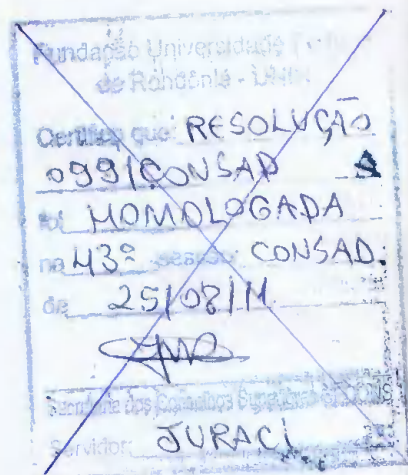 Fundação Universidade
de Rondônia - UNIR
Certifico que: RESOLUÇÃO
099/CONSAD
foi HOMOLOGADA
na 43ª sessão CONSAD.
de 25/08/11
Secretaria dos Conselhos Superiores
Servidor: JURACI